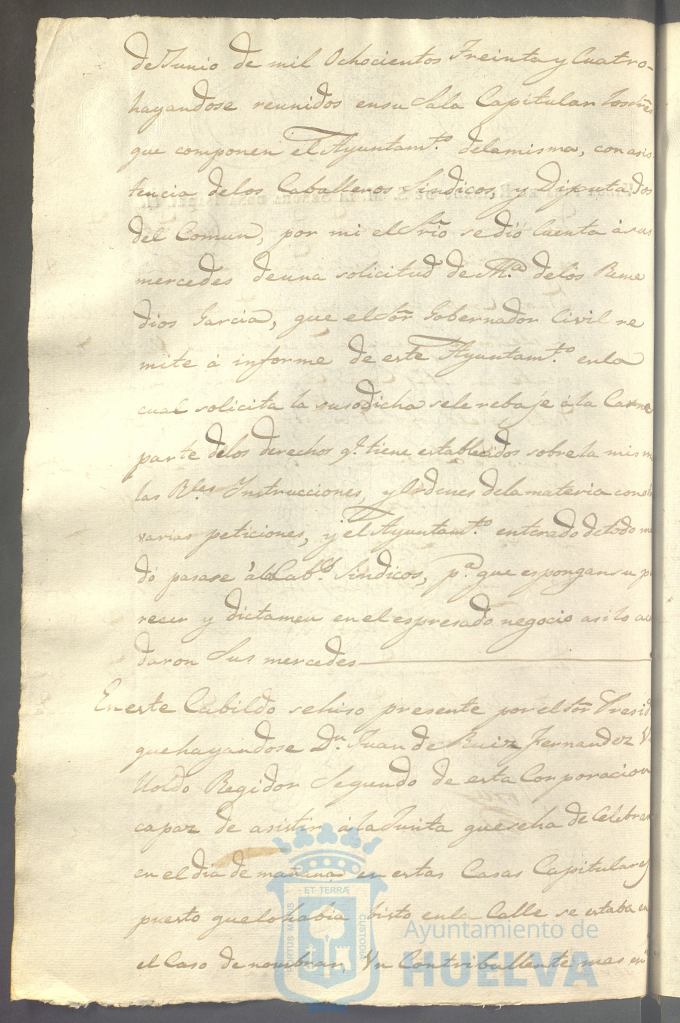 de Junio de mil Ochocientos Treinta y Cuatro-
hayandose reunidos ensu Sala Capitular los
que componen el Ayuntamto. delamisma, con asis
tencia delos Caballeros Sindicos, y Diputados
del Comun, por mi el Srio. se dió Cuenta á sus
mercedes de una solicitud de Ma. delos Reme
dios Garcia, que el Sor. Gobernador Civil re
mite á informe de este Ayuntamto. enla
cual solicita la susodicha sele rebaje á la Carne
parte delos derechos qe. tiene establecidos sobre la mism
las Rles. Instrucciones, y Ordenes dela materia con
varias peticiones, y el Ayuntamto. enterado de todo m
dó pasase á Cabos. Sindicos, pa. que espongan su p
recer y dictamen en el espresado negocio asi lo a
daron Sus mercedes
En este Cabildo se hiso presente por el Sor. Presid
que hayandose Dn. Juan de Ruiz Fernandez
Regidor Segundo de esta Corporacion
capaz de asistir á la Junta que se ha de Celebrar
en el dia de mañana en estas Casas Capitulares
puesto que lo habia bisto enla Calle se estaba en
el Caso de nombrar, Un Contribullente mas en
ET TERRÆ
CUSTODIA
PORTUS MARIS
Ayuntamiento de
HUELVA